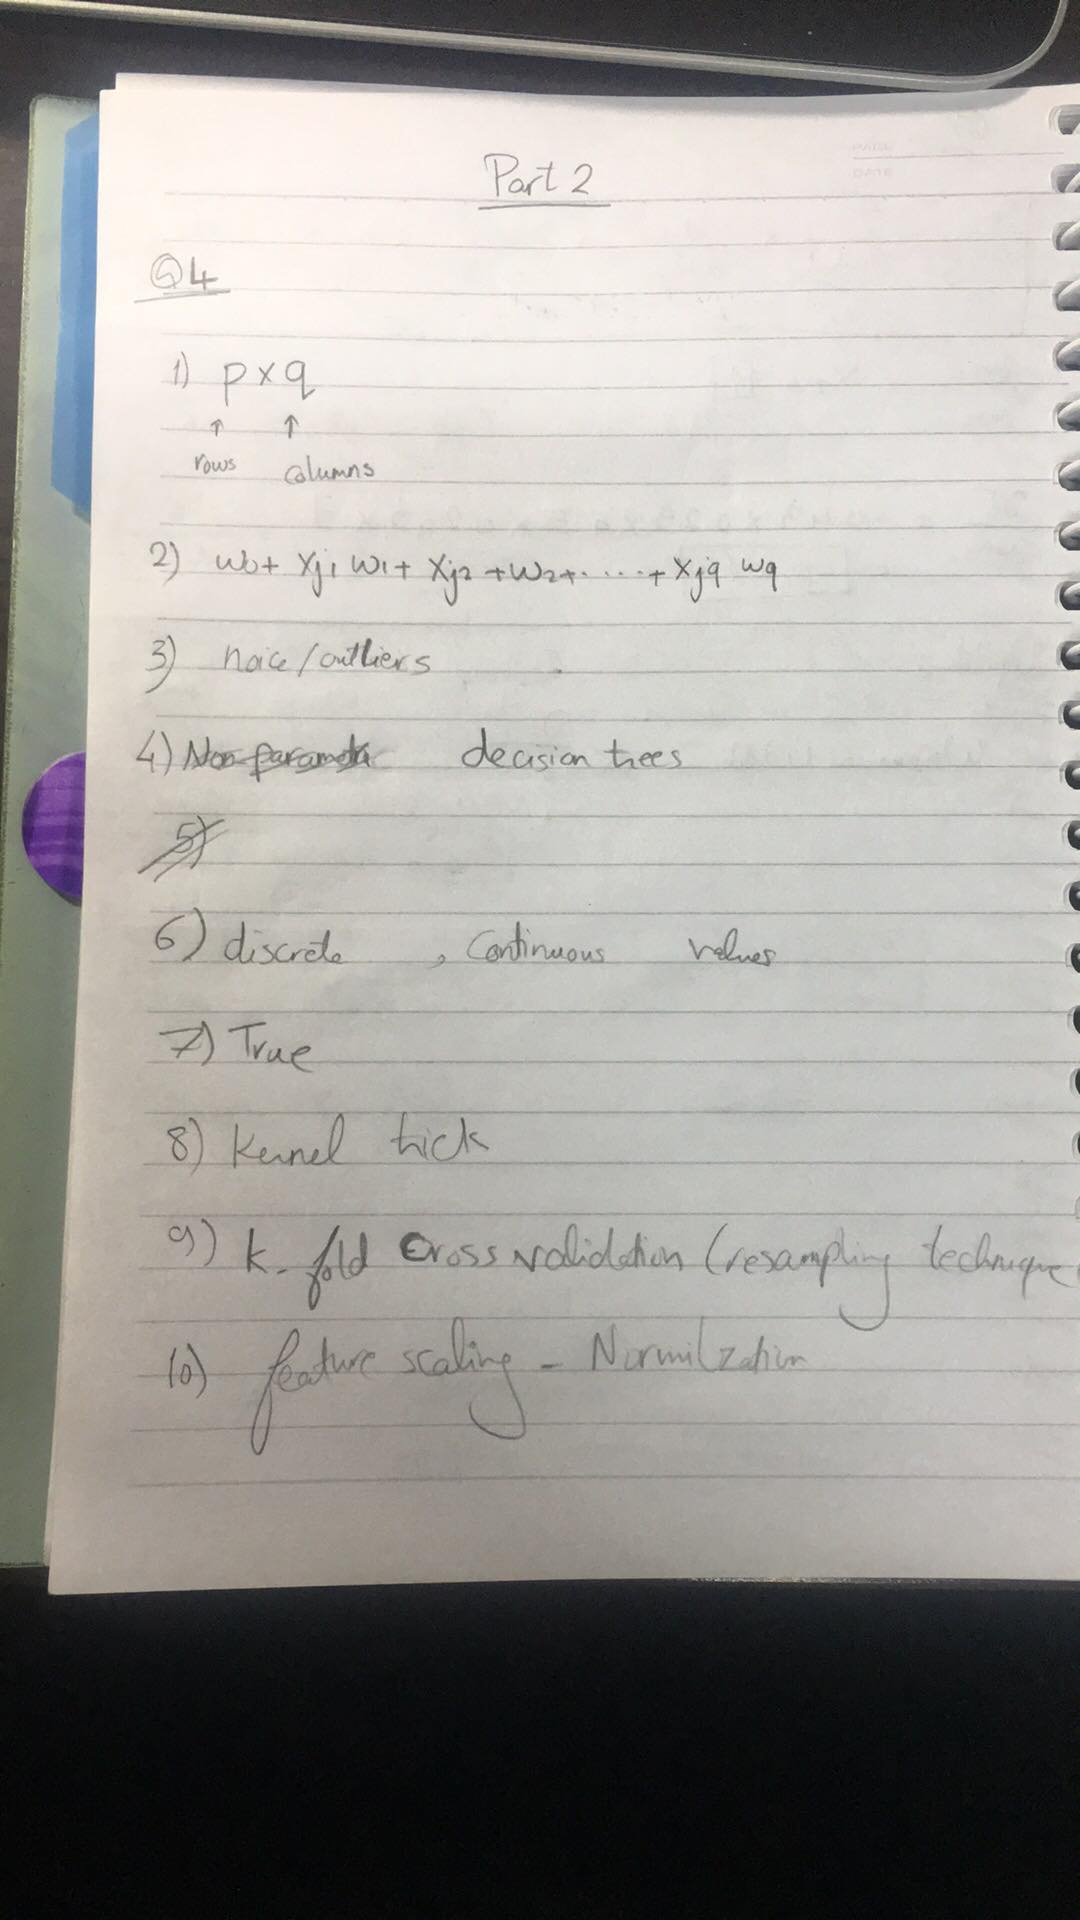 Part 2
Q4
1) p x q
↑ ↑
rows columns
2) w0+ xj1 w1+ xj2 +w2+.....+ xjq wq
3) noice/outliers
4) decision trees
5)
6) discrete , Continuous values
7) True
8) Kernel trick
9) k-fold Cross validation (resampling technique
10) feature scaling - Normilzation